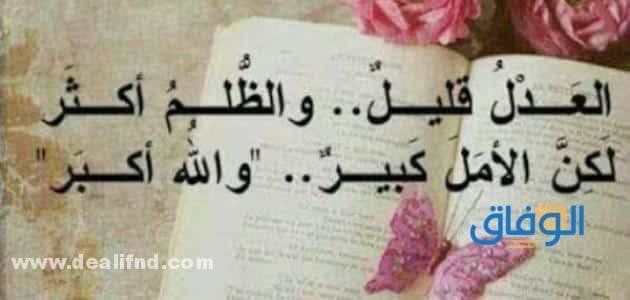 العَـدْلُ قليـلٌ.. والظُّلـمُ أكثَـر
لَكِنَّ الأمَلَ كَبيـرٌ.. "واللهُ أكبَـر"
الوفاق
www.dealifnd.com